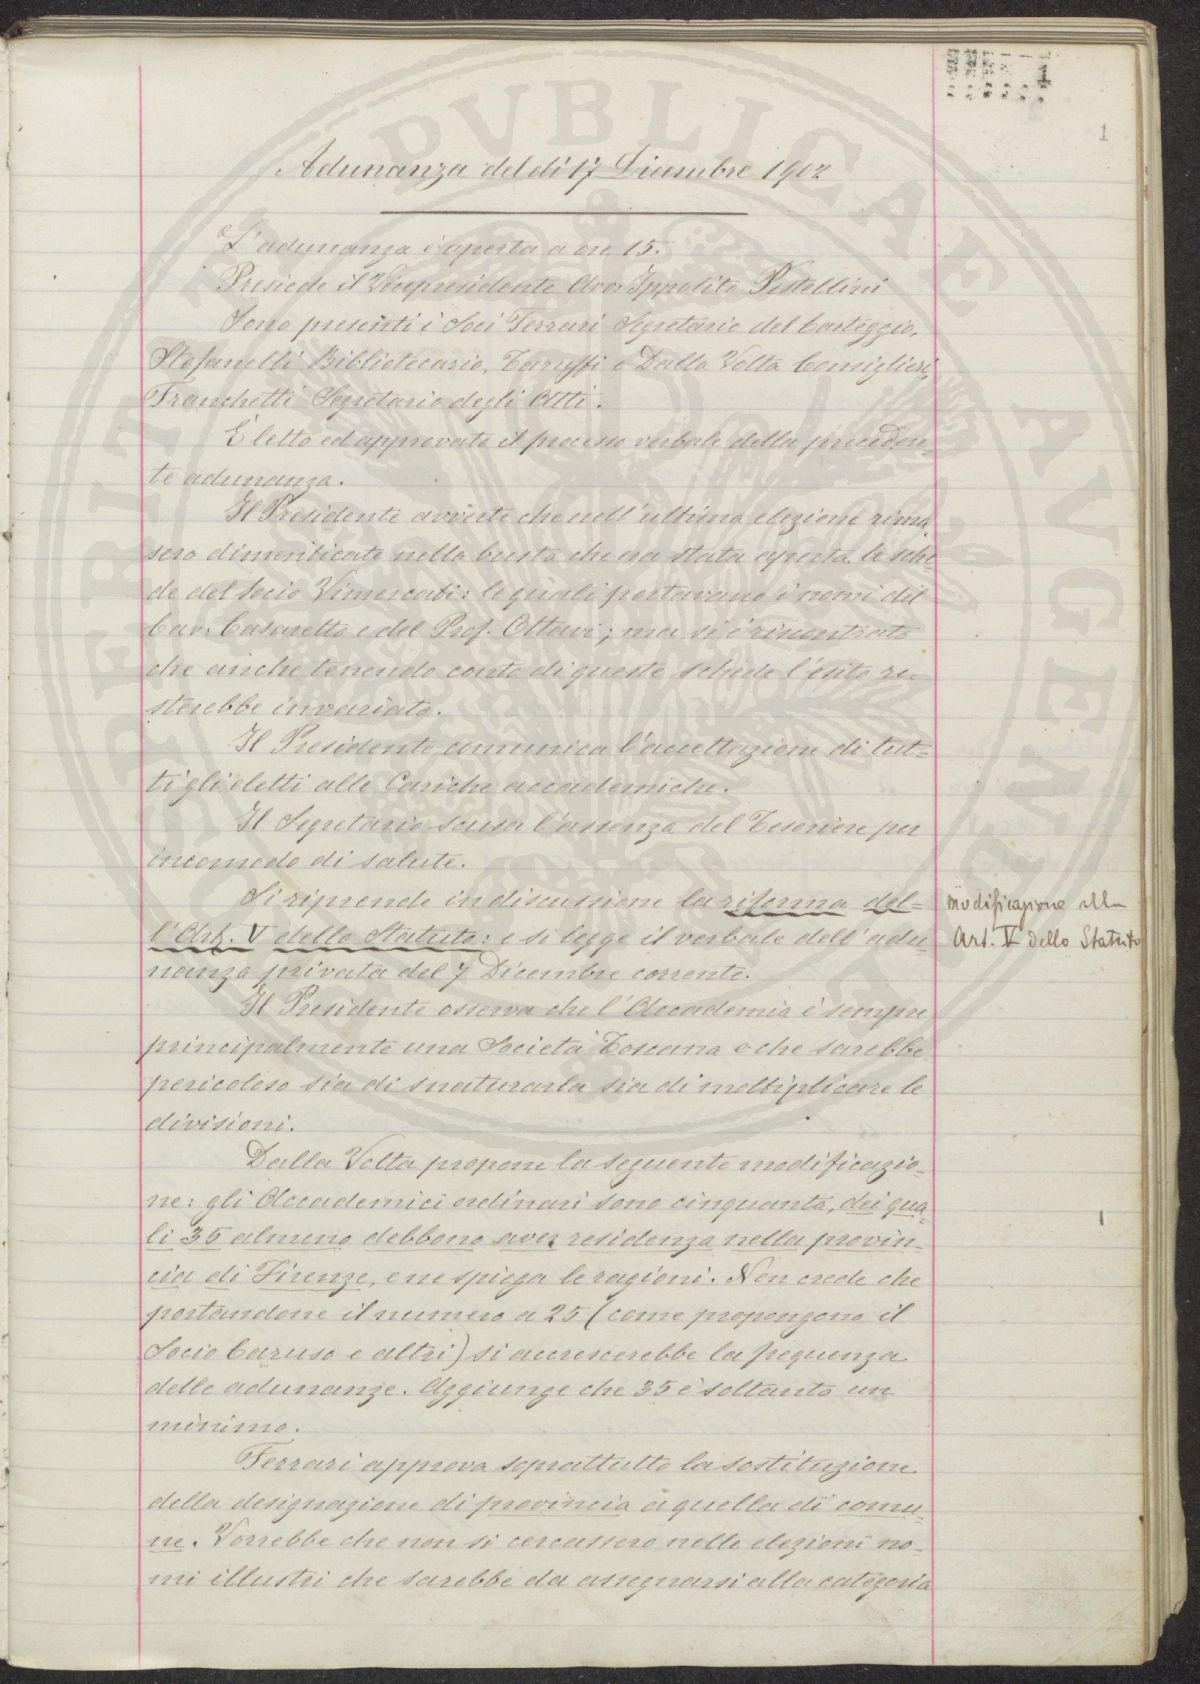 1
1
Adunanza del dì 17 Dicembre 1902
L'adunanza è aperta a ore 15.
Presiede il Vicepresidente Avv. Ippolito Pestellini
Sono presenti i Soci Ferrari Segretario del Carteggio,
Stefanelli Bibliotecario, Caruffi e Dalla Volta Consiglieri,
Franchetti Segretario degli Atti.
È letto ed approvato il processo verbale della preceden-
te adunanza.
Il Presidente avverte che nell'ultima elezione rima-
sero dimenticate nella busta che era stata aperta le sche-
de del Socio Vimercati: le quali portavano i nomi del
Cav. Casaretto e del Prof. Ottavi; ma si è riscontrato
che anche tenendo conto di queste schede l'esito re-
sterebbe invariato.
Il Presidente comunica l'accettazione di tut-
ti gli eletti alle Cariche accademiche.
Il Segretario scusa l'assenza del Tesoriere per
incomodo di salute.
Si riprende in discussione la riforma del-
l'Art. V dello Statuto: e si legge il verbale dell'adu-
nanza privata del 7 Dicembre corrente.
modificazione alla
Art. V dello Statuto
Il Presidente osserva che l'Accademia è sempre
principalmente una Società Toscana e che sarebbe
pericoloso sia di snaturarla sia di moltiplicare le
divisioni.
Dalla Volta propone la seguente modificazio-
ne: gli Accademici ordinari sono cinquanta, dei qua-
li 35 almeno debbono aver residenza nella provin-
cia di Firenze, e ne spiega le ragioni. Non crede che
portandone il numero a 25 (come propongono il
Socio Caruso e altri) si accrescerebbe la frequenza
delle adunanze. Aggiunge che 35 è soltanto un
minimo.
Ferrari approva soprattutto la sostituzione
della designazione di provincia a quella di comu-
ne. Vorrebbe che non si cercassero nelle elezioni no-
mi illustri che sarebbe da assegnarsi alla categoria
PVBLICAE
AVGENDAE